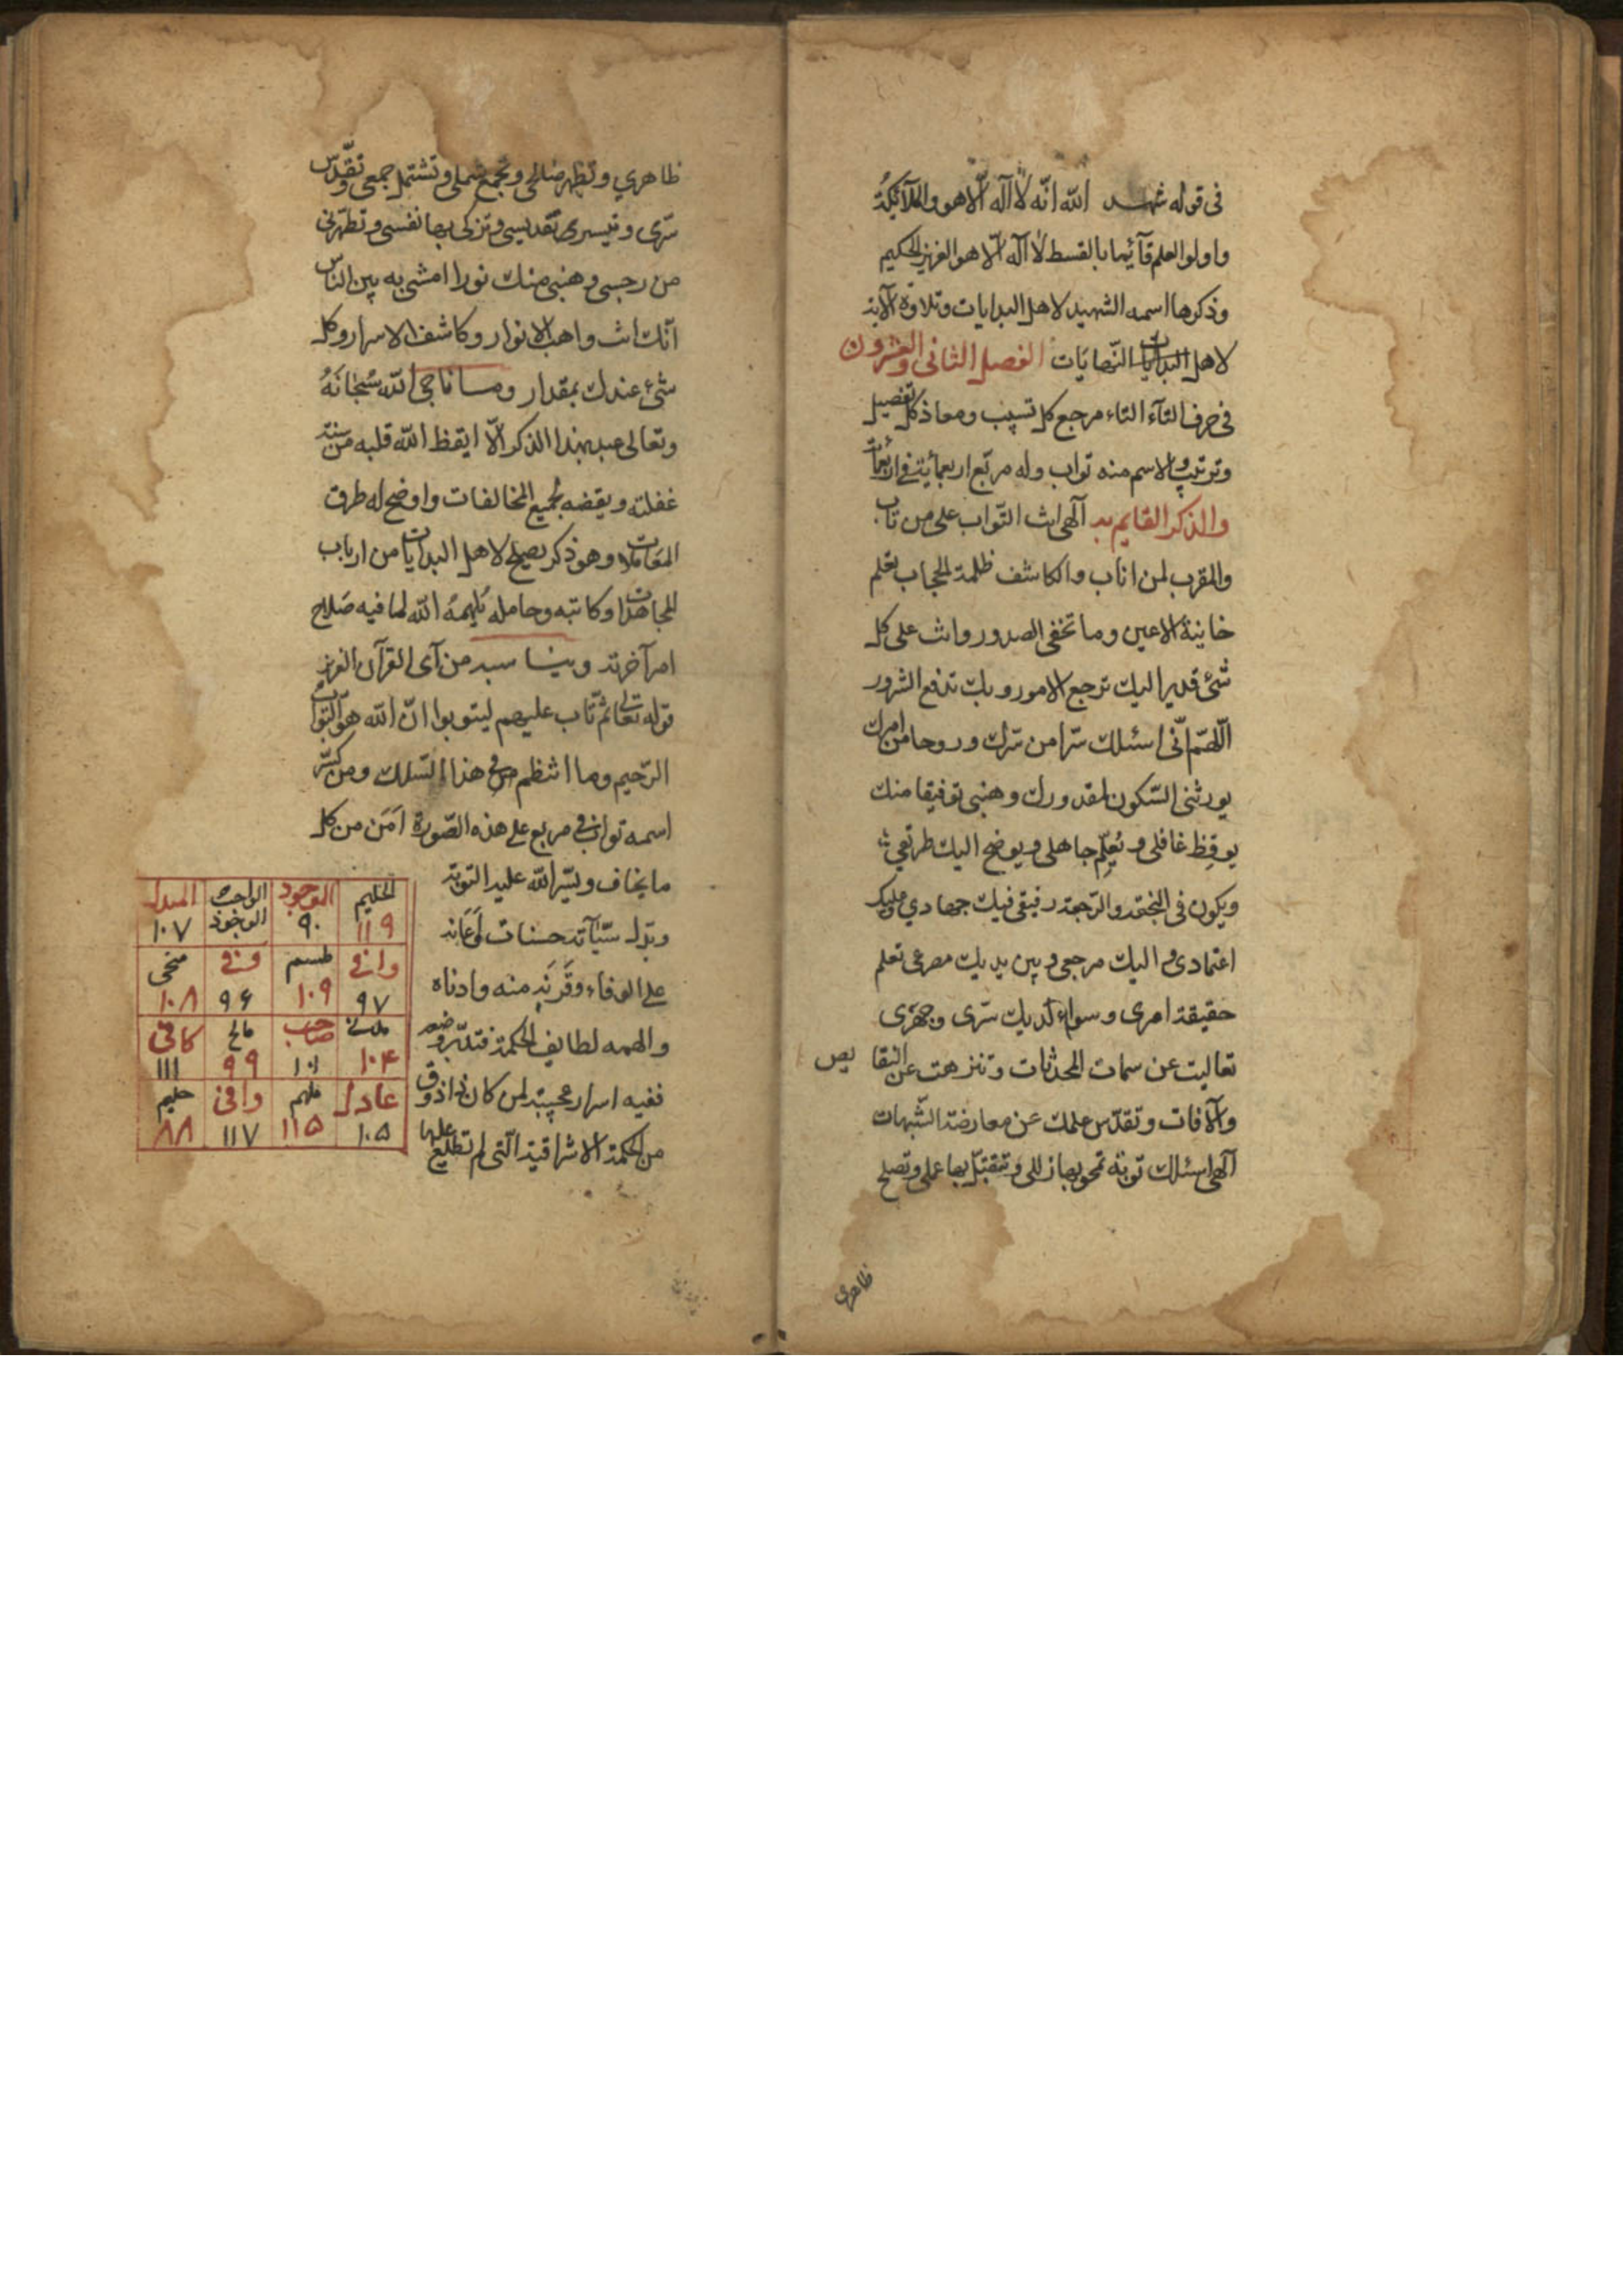 فى قوله شهد الله انّه لا آله الّا هو والملآئكة
واولوالعلم قآئما بالقسط لا اله الّا هو العزيز الحكيم
وذكرها اسمه الشهيد لاهل البدايات وتلاوة الآية
لاهل البدايات النّهايات الفصل الثانى والعشرون
فى حرف التآء التاء مرجع كل تسبيب ومعاذ كل تفصيل
وترتيب والاسم منه تواب وله مربّع اربعمائة فى اربعمائة
والذكر القايم به آلهى انت التّواب على من تاب
والمقرب لمن اناب والكاشف ظلمة الحجاب تعلم
خاينة الاعين وما تخفى الصدور وانت على كل
شئ قدير اليك ترجع الامور وبك تدفع الشرور
اللّهمّ انّى اسئلك سّرا من سّرك وروحا من امرك
يورثنى السّكون لمقدورك وهبنى توفيقا منك
يوقظ غافلى ويُعلّم جاهلى ويوضح اليك طريقى
ويكون فى النجعة والرّجعة رفيقى فيك جهادي وعليك
اعتمادى واليك مرجعى وبين يديك مصرعى تعلم
حقيقة امرى وسواء لديك سّرى وجهرى
تعاليت عن سمات المحدثات وتنزهت عن النقايص
والآفات وتقدّس علمك عن معارضة الشّبهات
آلهى اسئلك توبة تمحو بها زللى وتتقبّل بها عملى وتصلح
ظاهرى
ظاهري وتظهر ضلالى وتجمع شملى وتشتمل جمعى وتقدّس
سّرى وتيسرى تقديسى وتزكى بها نفسى وتطهّرنى
من رجسى وهبنى منك نورا امشى به بين النّاس
انّك انت واهب الانوار وكاشف الاسرار وكل
شئ عندك بمقدار وما ناجى الله سُبحانَهُ
وتعالى عبد بهذا الذكر الّا ايقظ الله قلبه من سنة
غفلته وبغضه لجميع المخالفات واوضح له طرق
المعاملات وهو ذكر يصلح لاهل البدايات من ارباب
المجاهدات وكاتبه وحامله يُلهمهُ الله لما فيه صَلاح
امر آخرته ويناسبه من آى القرآن العزيز
قوله تعالى ثمّ تاب عليهم ليتوبوا انّ الله هو التّواب
الرّحيم وما انتظم فى هذا السّلك ومن كسّر
اسمه تواب فى مربع على هذه الصّورة اَمَن من كل
ما يخاف ويسّر الله عليه التوبة
وبدل سيّآته حسنات واَعَانه
على الوفاء وقَرّبَه منه وادناه
والهمه لطايف الحكمة فتدبّره
ففيه اسرار عجيبة لمن كان ذا ذوق
من الحكمة الاشراقية الّتى لم تطلع عليها
الحليم الموجود الواجد الموجود المبدل
١١٩ ٩٠ ١٠٧
وافى طسم منجى
٩٧ ١٠٩ ٩٦ ١٠٨
صاحب مانح كافى
١٠٤ ١٠١ ٩٩ ١١١
عادل ملهم وافى حليم
١٠٥ ١١٥ ١١٧ ٨٨